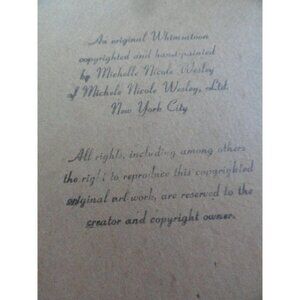 An original Whimsitoon
copyrighted and hand-painted
by Michelle Nicole Wesley
of Michele Nicole Wesley, Ltd.
New York City
All rights, including among others
the right to reproduce this copyrighted
original art work, are reserved to the
creator and copyright owner.